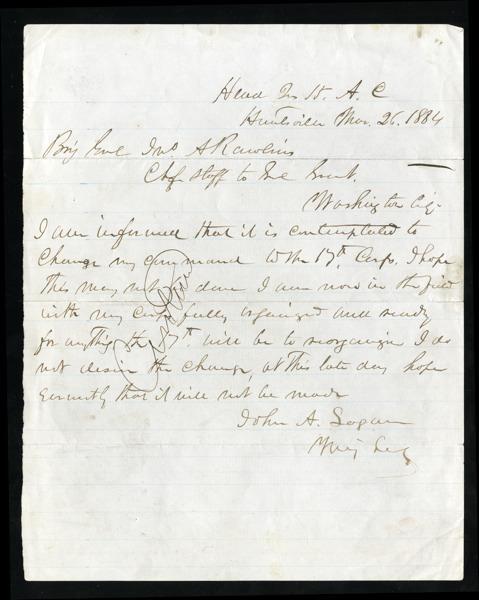 Head Qrs 15. A. C
Huntsville Mar. 26. 1884
Brig Genl Jno A Rawlins
Chf staff to Genl Grant.
Washington City.
I am informed that it is contemplated to
change my command to the 17th. Corps. I hope
this may not be done I am now in the field
with my corps fully organized and ready
for anything the 17th. will be to reorganize I do
not desire the change, at this late day hope
earnestly that it will not be made
John A. Logan
Maj Genl